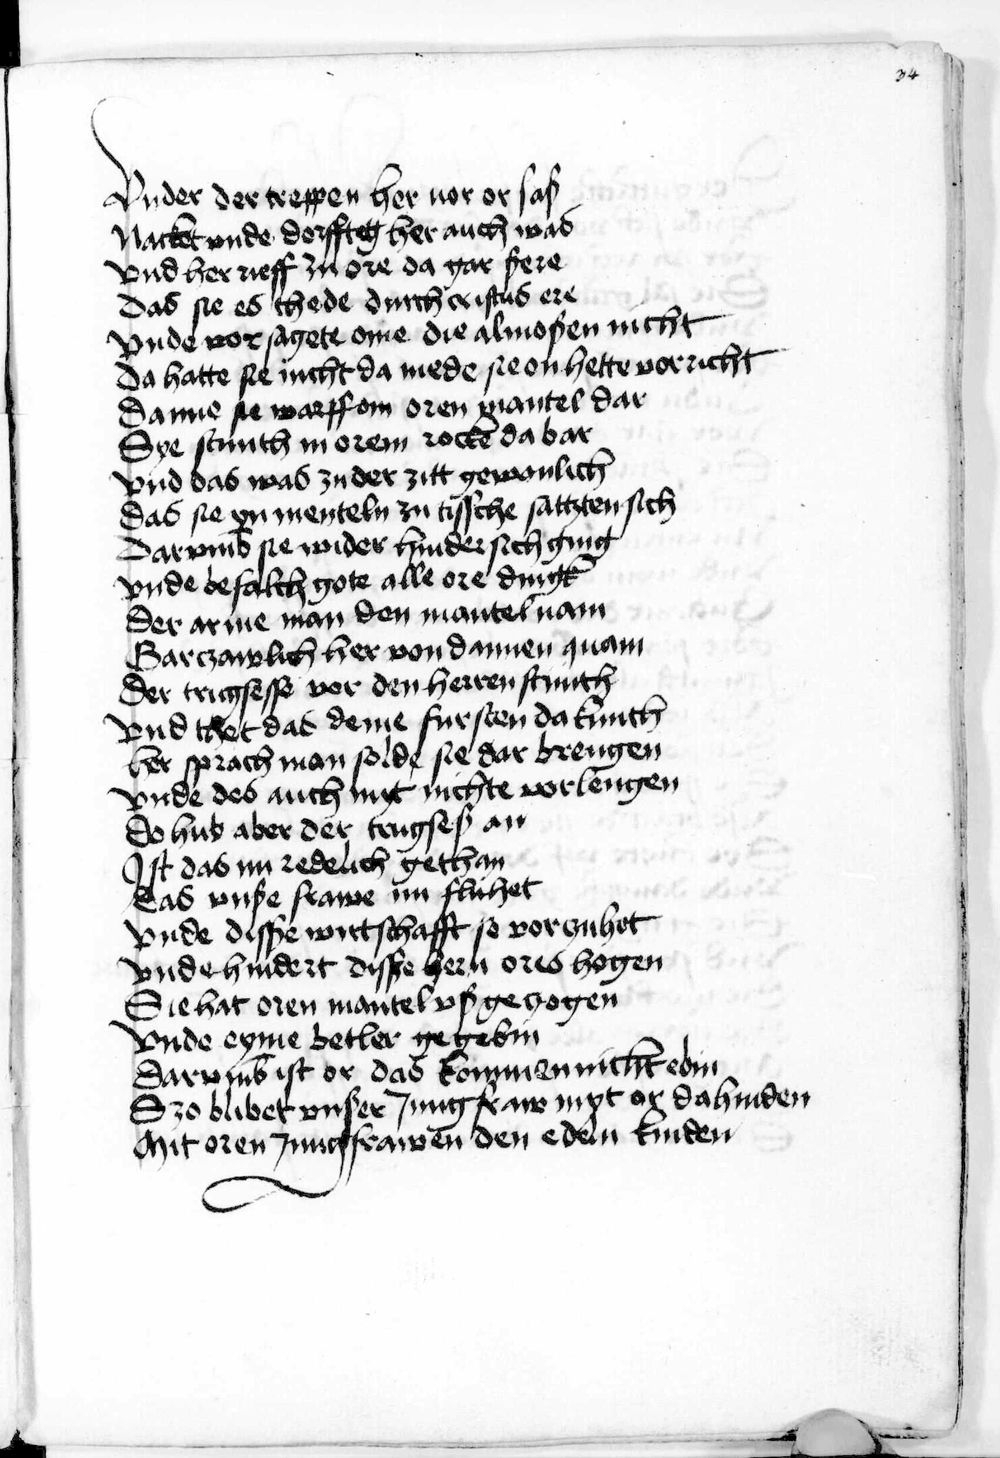 34
Vnder der treppen her vor or saß
Nacket vnde dorfftig her auch was
vnd her rieff zu ore da gar ßere
Das sie es thede durch cristus ere
vnde vor sagete ome die almoßen nicht
Da hatte sie nicht da mede sie on hette vorricht
Danne sie warff om oren mantel dar
Sye stunth in orem rocke da bar
vnd das was zu der zitt gewonlich
das sie yn menteln zu tissche sattzten sich
Darvmb sie wider hinder sich ging
vnde befalch gote alle ore dingk
Der arme man den mantel nam
Gar czawlich her von dannen quam
Der trugsesse vor den herren stunth
vnd thet das deme fursten da kunth
her sprach man solde sie dar brengen
vnde des auch mit nichte vorlengen
Do hub aber der trugseß an
Ist das nu redelich gethan
Das vnße frawe nu fluhet
vnde disße wirtschafft so vorzuhet
vnde hindert disße hern ores hogen
Sie hat oren mantel vß gezogen
vnde eyme betler gegebin
Darvmb ist or das kommen nicht ebin
Szo blibet vnßer Jungfraw myt or dahinden
Mit oren Jungfrawen den edeln kinden